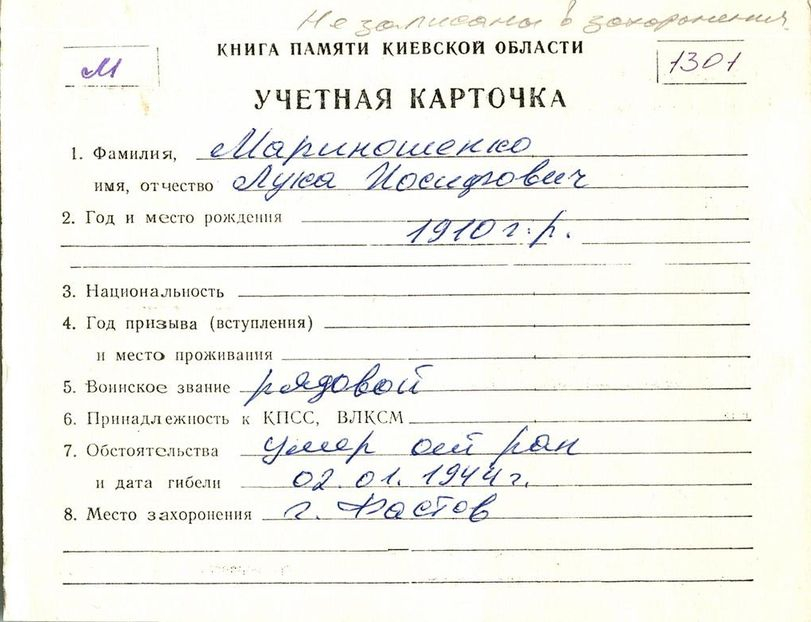 Не записаны в захоронения
КНИГА ПАМЯТИ КИЕВСКОЙ ОБЛАСТИ
М
1301
УЧЕТНАЯ КАРТОЧКА
1. Фамилия, Мариношенко
имя, отчество Лука Иосифович
2. Год и место рождения
1910 г. р.
3. Национальность
4. Год призыва (вступления)
и место проживания
5. Воинское звание рядовой
6. Принадлежность к КПСС, ВЛКСМ
7. Обстоятельства умер от ран
и дата гибели 02.01.1944 г.
8. Место захоронения г. Фастов